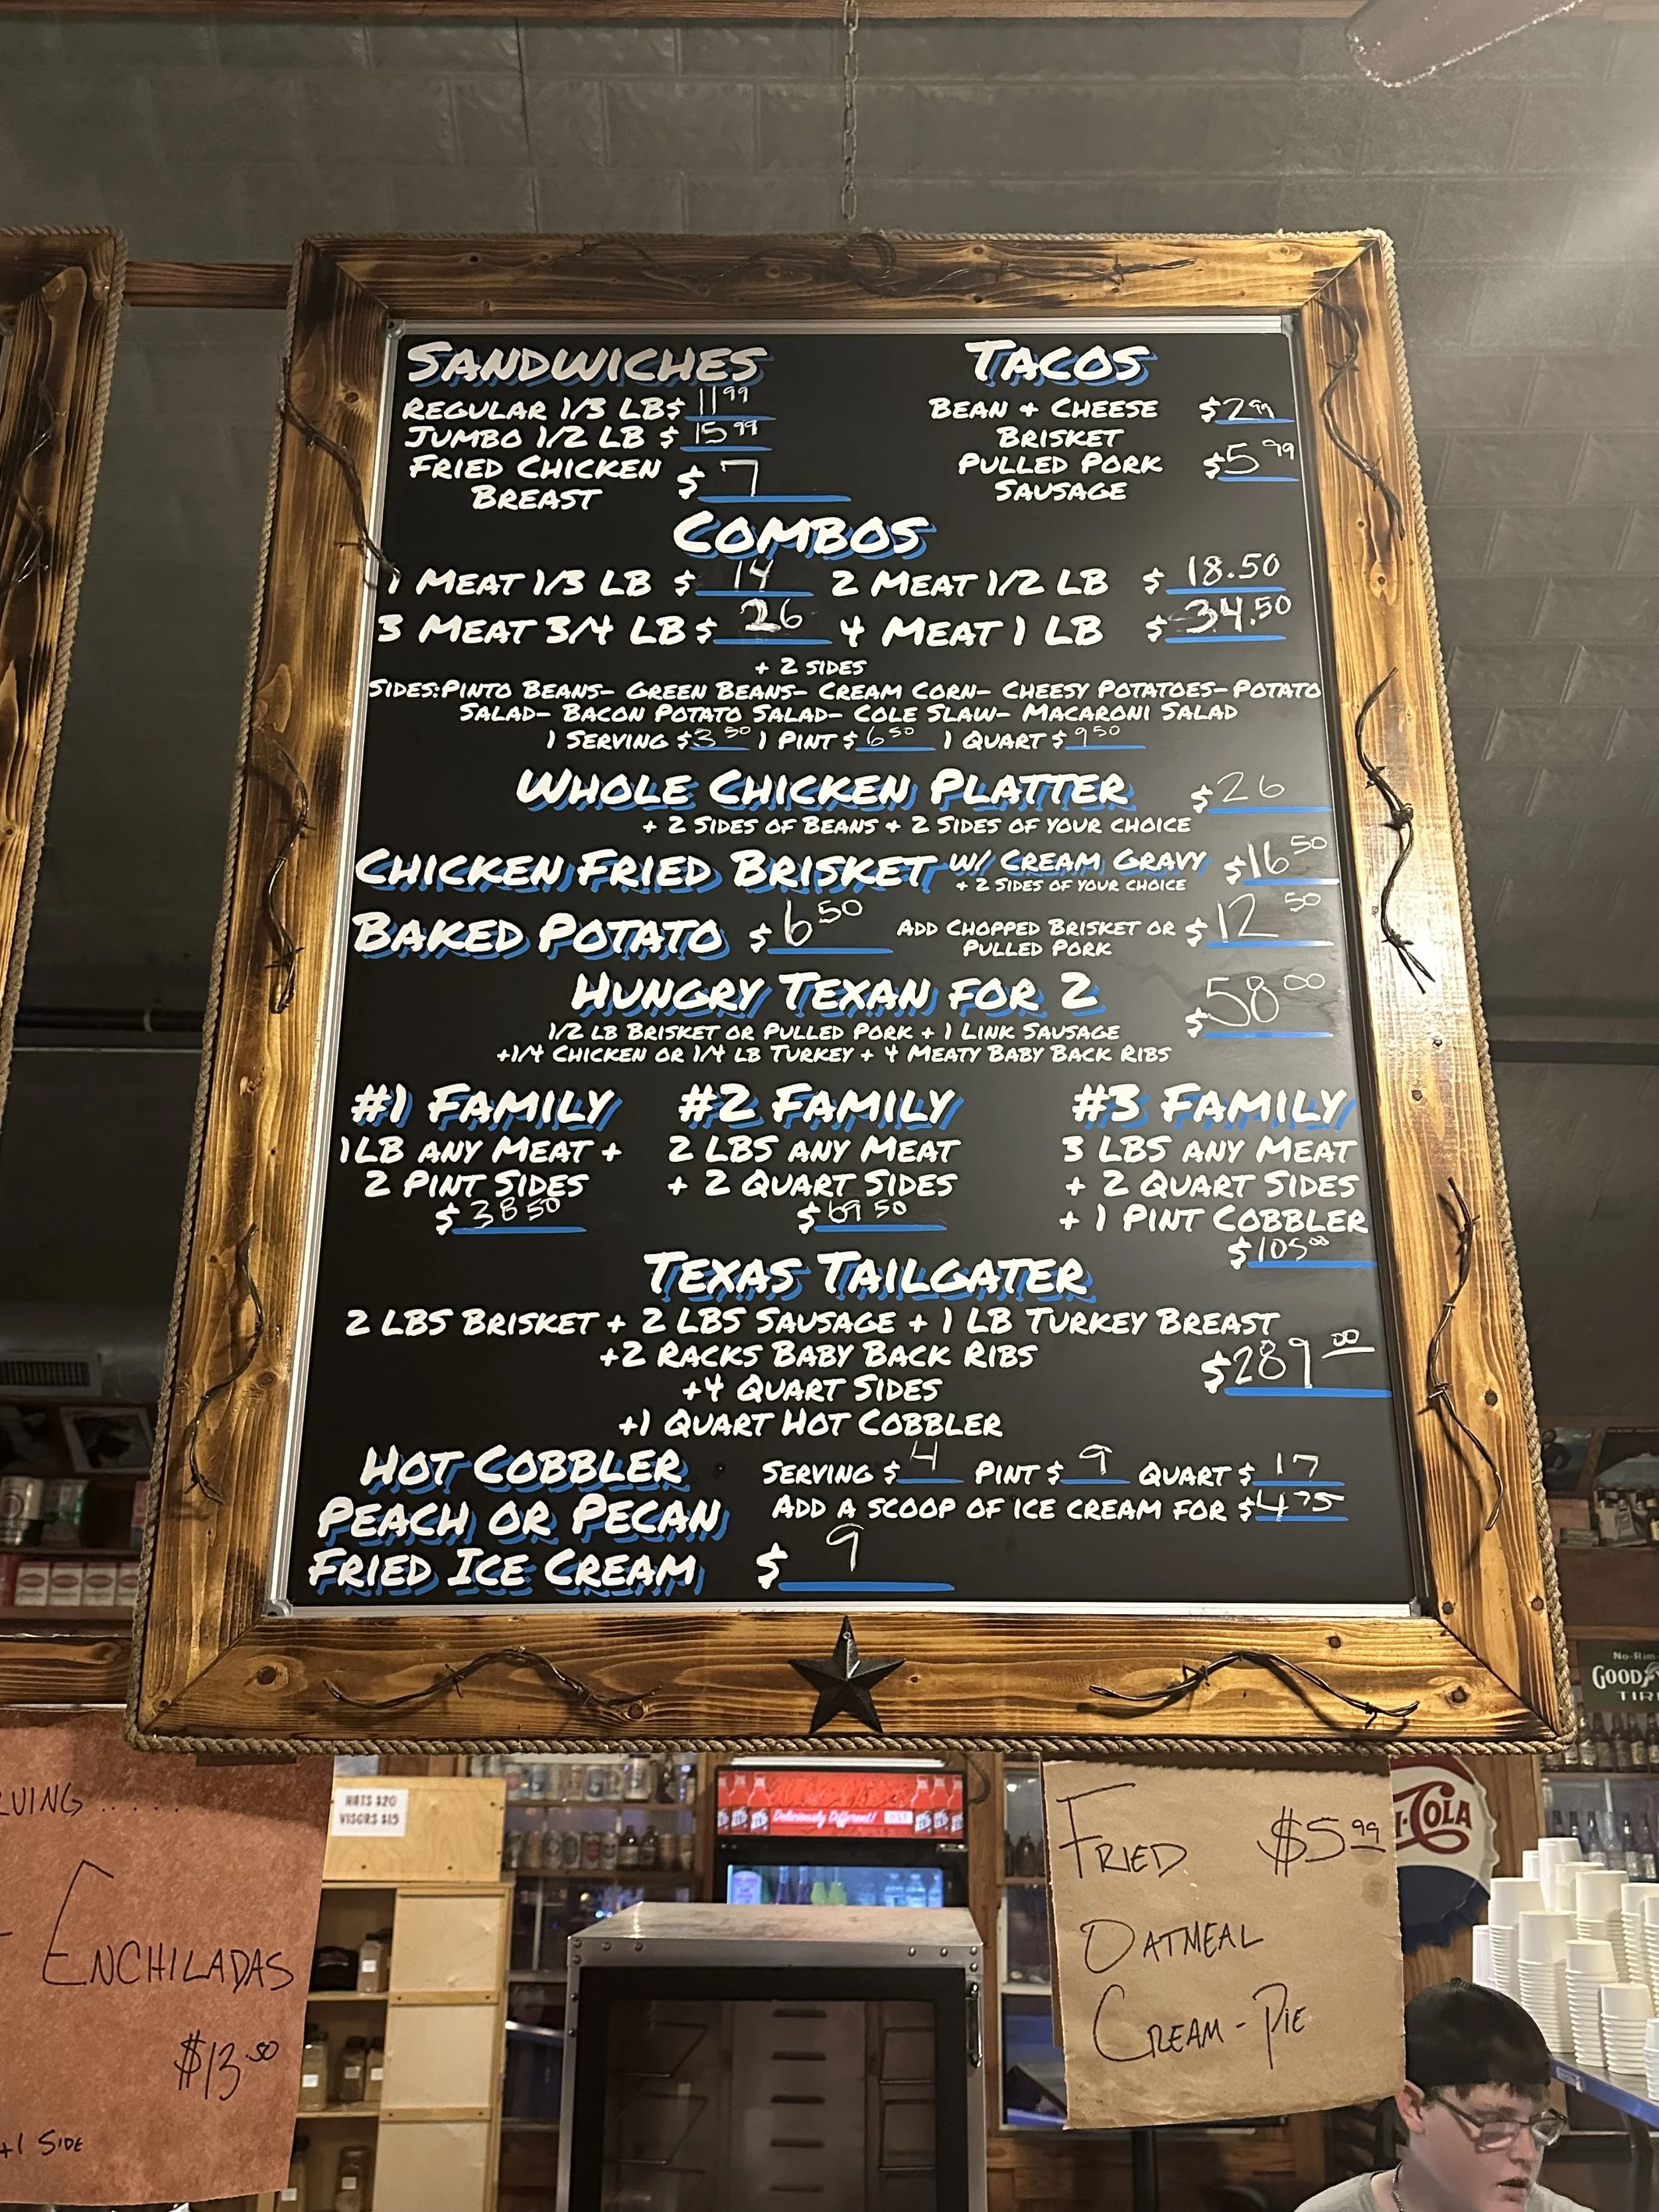 SANDWICHES
REGULAR 1/3 LB $ 11 99
JUMBO 1/2 LB $ 15 99
FRIED CHICKEN BREAST $ 7
TACOS
BEAN + CHEESE $2 99
BRISKET
PULLED PORK $5 99
SAUSAGE
COMBOS
1 MEAT 1/3 LB $ 14 2 MEAT 1/2 LB $ 18.50
3 MEAT 3/4 LB $ 26 4 MEAT 1 LB $ 34.50
+ 2 SIDES
SIDES:PINTO BEANS- GREEN BEANS- CREAM CORN- CHEESY POTATOES- POTATO
SALAD- BACON POTATO SALAD- COLE SLAW- MACARONI SALAD
1 SERVING $3 50 1 PINT $ 6 50 1 QUART $ 9 50
WHOLE CHICKEN PLATTER $26
+ 2 SIDES OF BEANS + 2 SIDES OF YOUR CHOICE
CHICKEN FRIED BRISKET W/ CREAM GRAVY $16 50
+ 2 SIDES OF YOUR CHOICE
BAKED POTATO $ 6 50 ADD CHOPPED BRISKET OR $12 50
PULLED PORK
HUNGRY TEXAN FOR 2 $58 00
1/2 LB BRISKET OR PULLED PORK + 1 LINK SAUSAGE
+1/4 CHICKEN OR 1/4 LB TURKEY + 4 MEATY BABY BACK RIBS
#1 FAMILY
1LB ANY MEAT +
2 PINT SIDES
$ 38 50
#2 FAMILY
2 LBS ANY MEAT
+ 2 QUART SIDES
$ 69 50
#3 FAMILY
3 LBS ANY MEAT
+ 2 QUART SIDES
+ 1 PINT COBBLER
$105 00
TEXAS TAILGATER
2 LBS BRISKET + 2 LBS SAUSAGE + 1 LB TURKEY BREAST
+2 RACKS BABY BACK RIBS $289 00
+4 QUART SIDES
+1 QUART HOT COBBLER
HOT COBBLER SERVING $ 4 PINT $ 9 QUART $ 17
PEACH OR PECAN ADD A SCOOP OF ICE CREAM FOR $4 75
FRIED ICE CREAM $ 9
RVING.....
ENCHILADAS
$13.50
+1 SIDE
HATS $20
VISORS $15
Deliciously Different!
FRIED $5 99
OATMEAL
CREAM-PIE
I-COLA
No-Rim-
GOOD
TIR